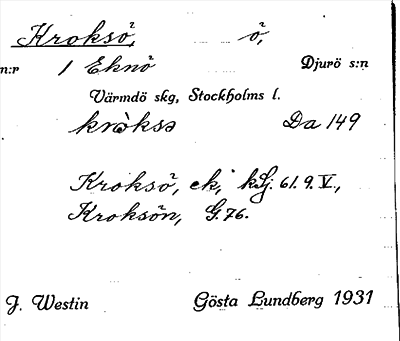 Kroksö, ö,
n:r 1 Eknö Djurö s:n
Värmdö skg, Stockholms l.
kròksə Da 149
Kroksö, ek, kSj. 61. 9. V.,
Kroksön, G. 76.
J. Westin Gösta Lundberg 1931